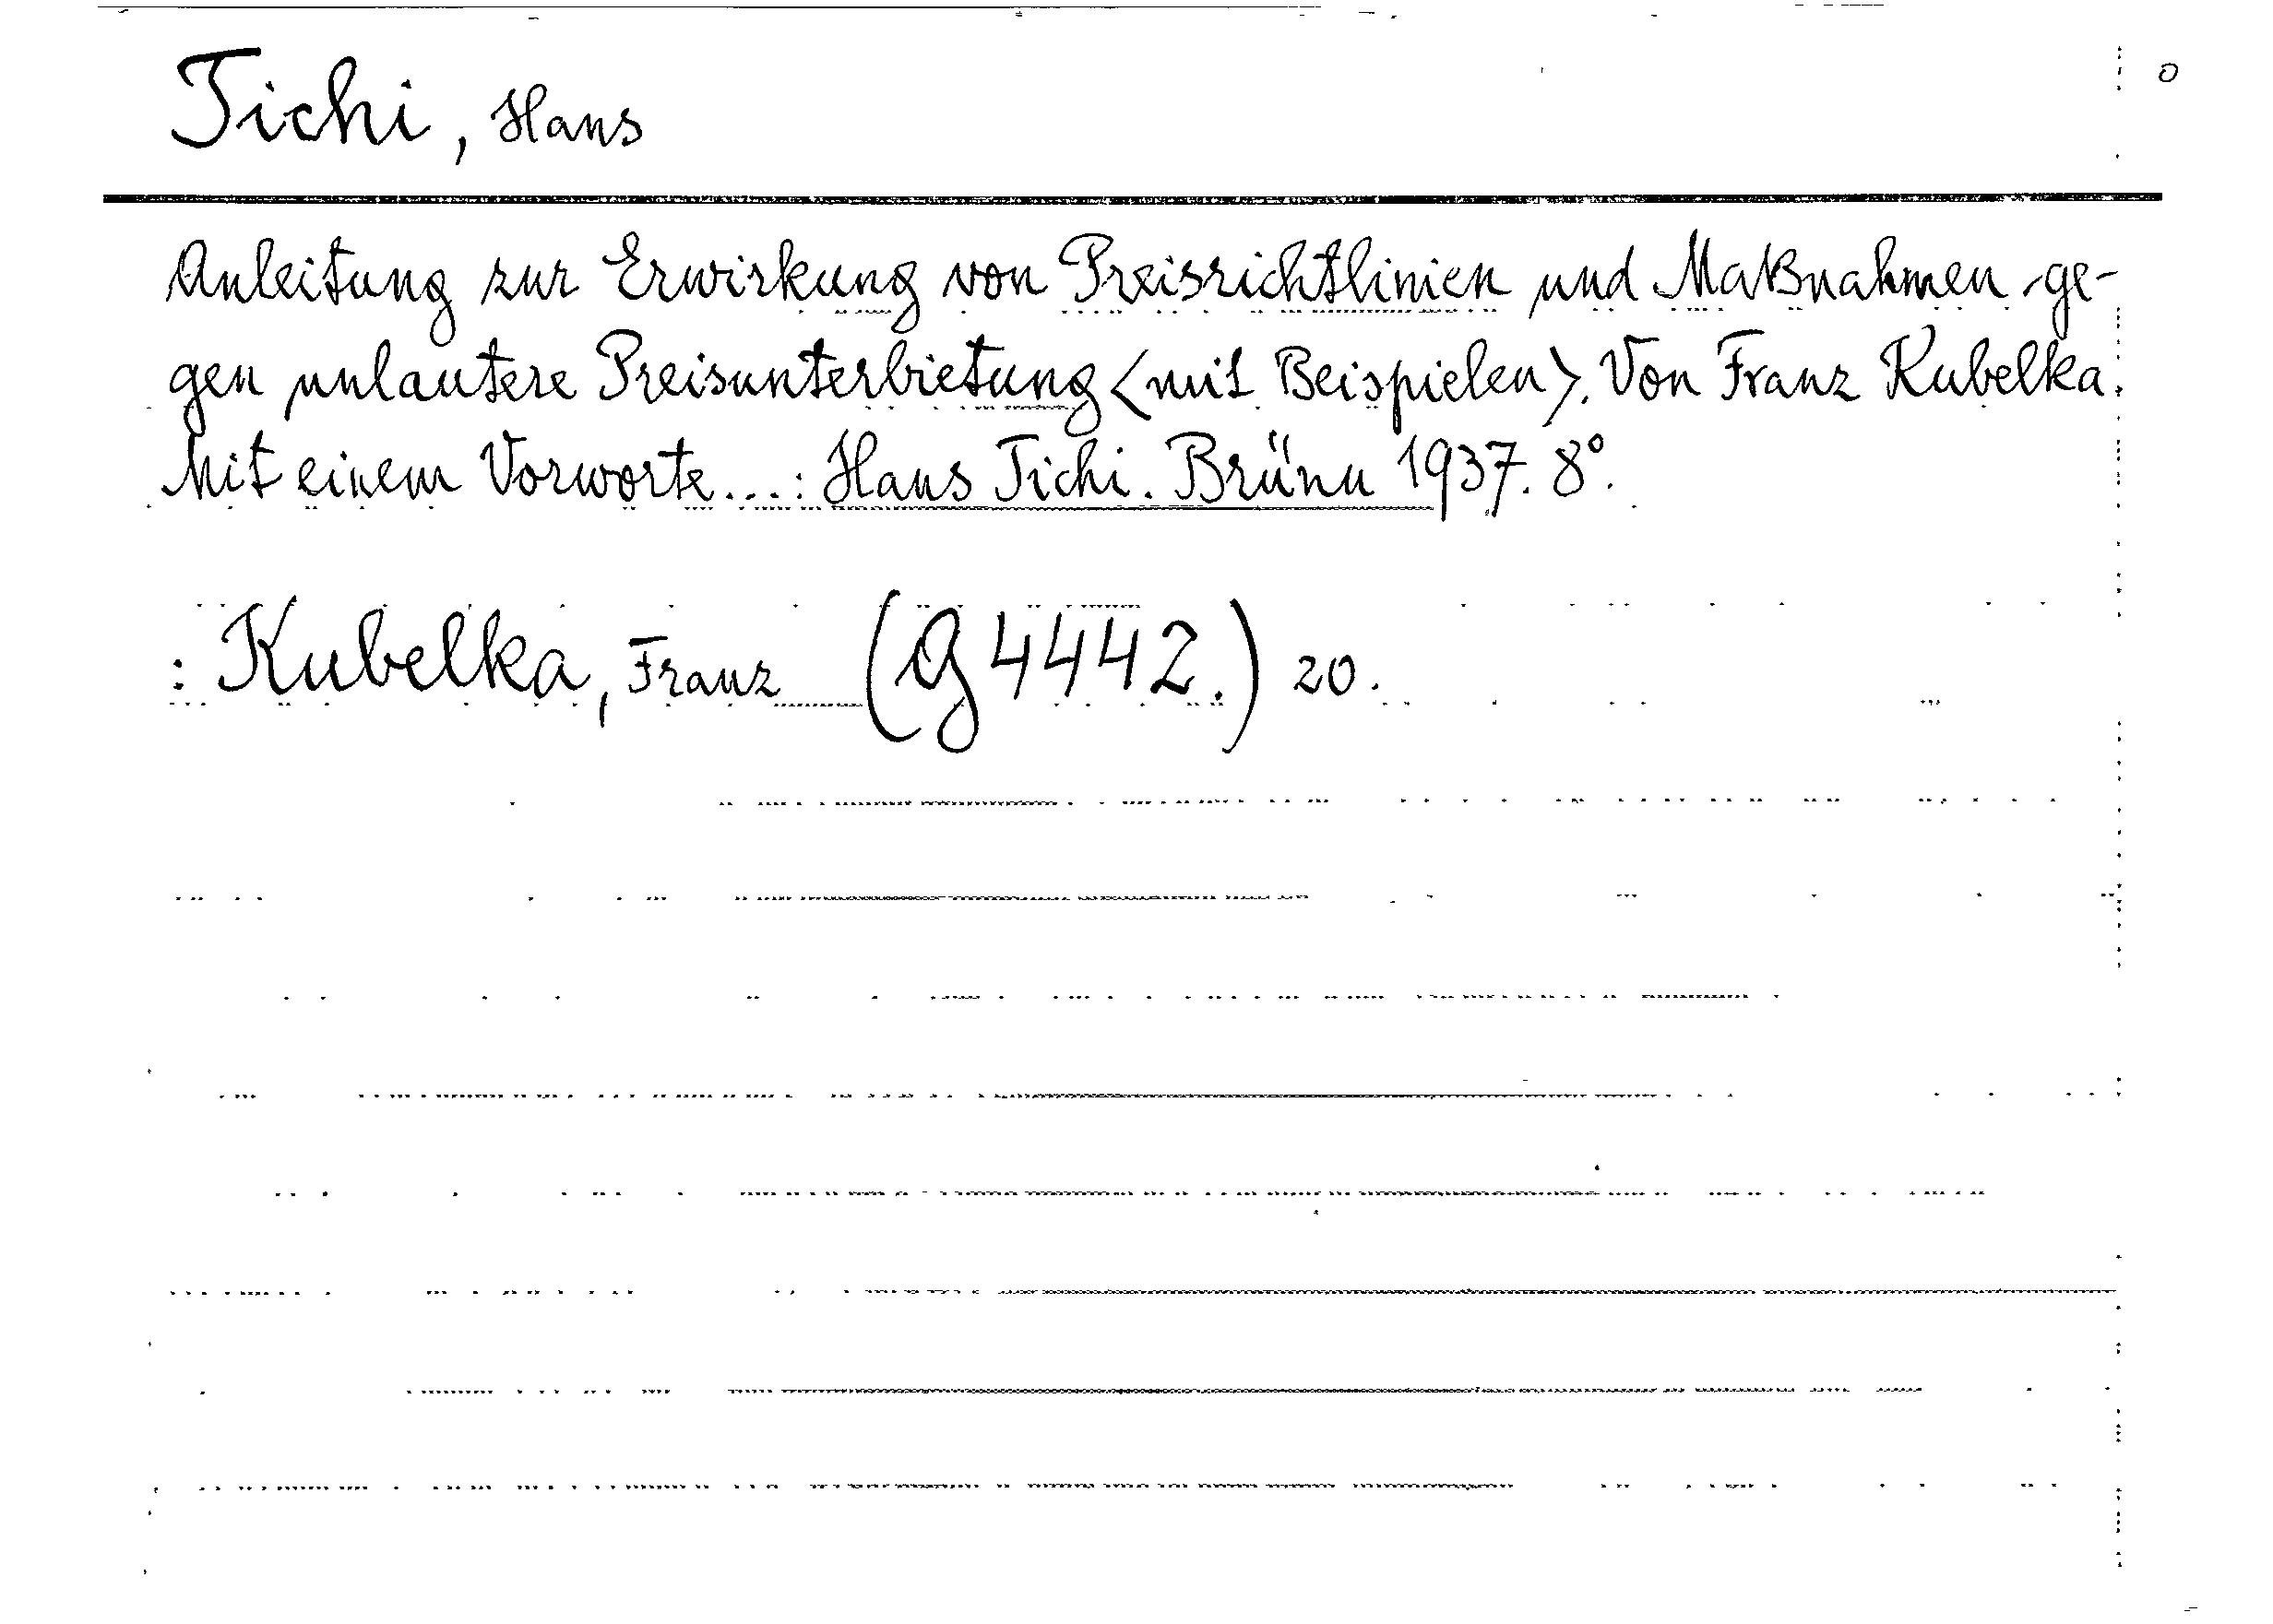 Tichi, Hans
o
Anleitung zur Erwirkung von Preisrichtlinien und Maßnahmen ge-
gen unlautere Preisunterbietung <mit Beispielen>. Von Franz Kubelka.
Mit einem Vorworte...: Hans Tichi. Brünn 1937. 8°.
: Kubelka, Franz (G 4442.) 20.